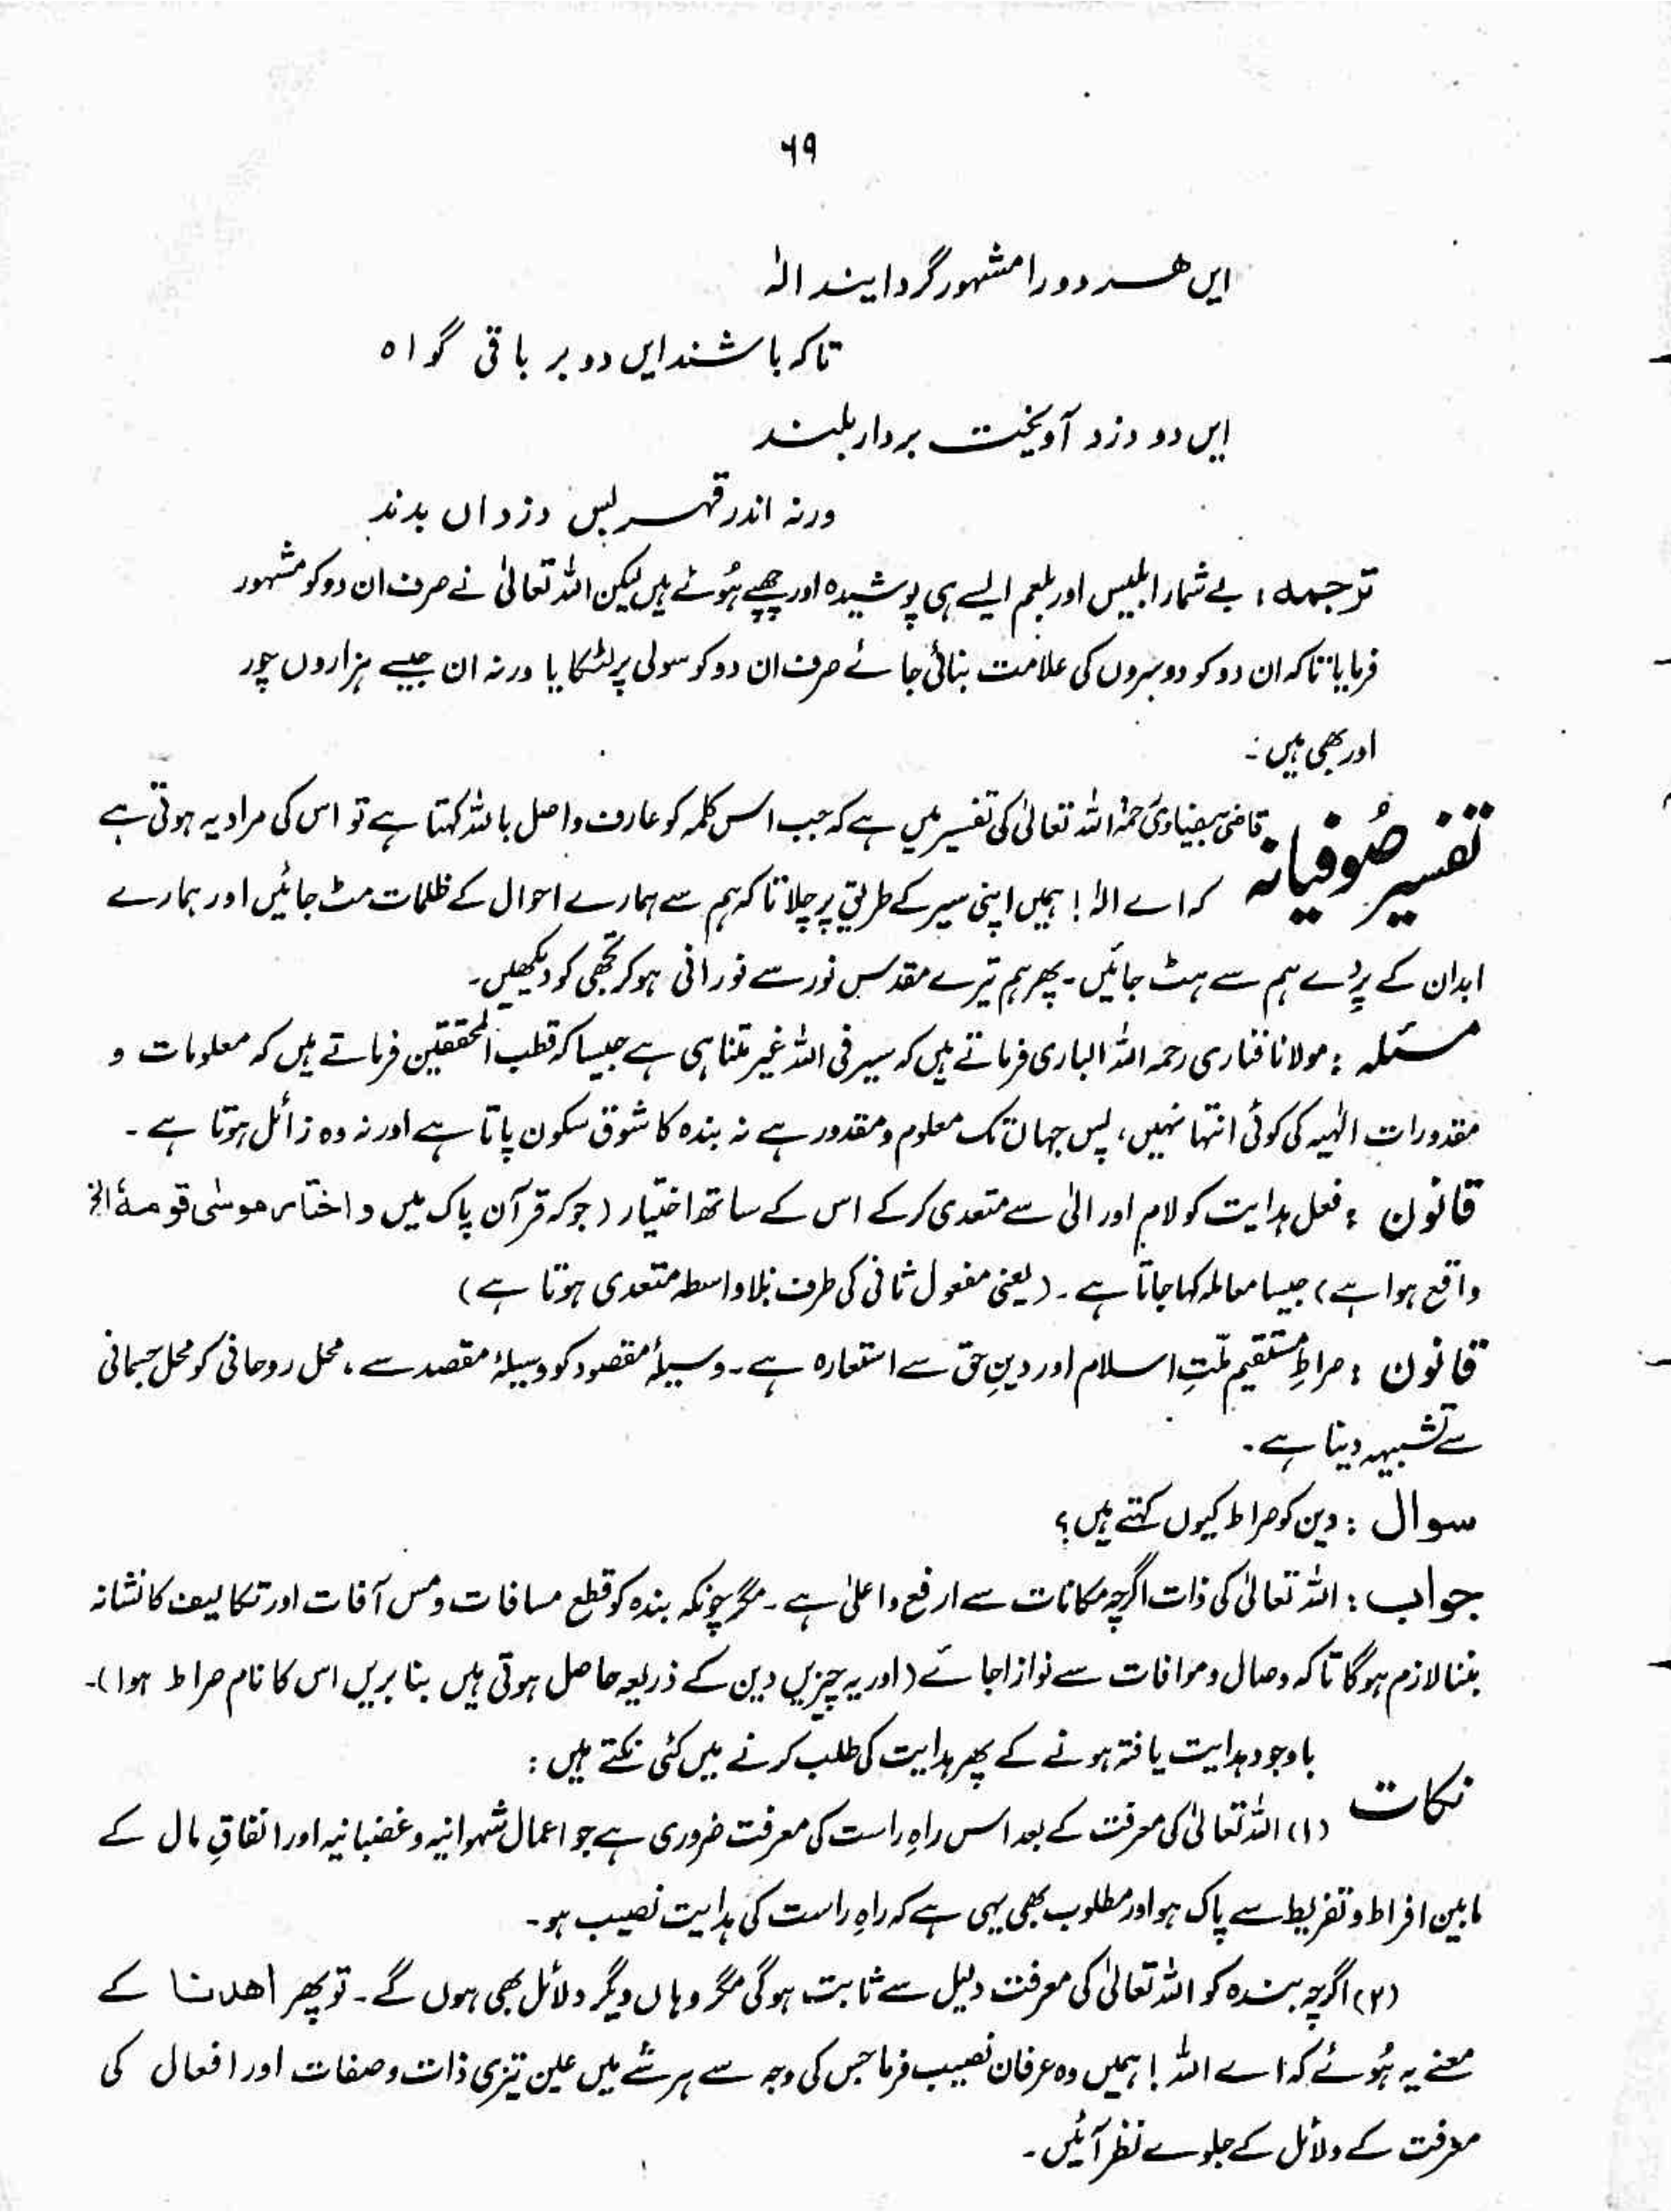 ۶۹
ایں ھر دو را مشہور گردایند الٰہ
تاکہ باشند ایں دو بر باقی گواہ
ایں دو دزد آویخت بردار بلند
ورنہ اندر قہر بس دزداں بدند
ترجمہ: بے شمار ابلیس اور بلعم ایسے ہی پوشیدہ اور چھپے ہُوئے ہیں لیکن اللہ تعالیٰ نے صرف ان دو کو مشہور
فرمایا تاکہ ان دو کو دوسروں کی علامت بنائی جائے صرف ان دو کو سولی پر لٹکایا ورنہ ان جیسے ہزاروں چور
اور بھی ہیں :
تفسیر صُوفیانہ قاضی بیضاوی رحمۃ اللہ تعالیٰ کی تفسیر میں ہے کہ جب اس کلمہ کو عارف واصل باللہ کہتا ہے تو اس کی مراد یہ ہوتی ہے
کہ اے الٰہ! ہمیں اپنی سیر کے طریق پر چلا تاکہ ہم سے ہمارے احوال کے ظلمات مٹ جائیں اور ہمارے
ابدان کے پردے ہم سے ہٹ جائیں۔ پھر ہم تیرے مقدس نور سے نورانی ہوکر تجھی کو دیکھیں۔
مسئلہ : مولانا فناری رحمہ اللہ الباری فرماتے ہیں کہ سیر فی اللہ غیر متناہی ہے جیسا کہ قطب المحققین فرماتے ہیں کہ معلومات و
مقدورات الٰہیہ کی کوئی انتہا نہیں، پس جہاں تک معلوم و مقدور ہے نہ بندہ کا شوق سکون پاتا ہے اور نہ وہ زائل ہوتا ہے۔
قانون : فعل ہدایت کو لام اور الیٰ سے متعدی کرکے اس کے ساتھ اختیار (جو کہ قرآن پاک میں واختار موسٰی قومہٗ الخ
واقع ہوا ہے) جیسا معاملہ کہا جاتا ہے۔ (یعنی مفعول ثانی کی طرف بلا واسطہ متعدی ہوتا ہے)
قانون : صراطِ مستقیم ملّتِ اسلام اور دینِ حق سے استعارہ ہے۔ وسیلۂ مقصود کو وسیلۂ مقصد سے، محل روحانی کو محل جسمانی
سے تشبیہہ دینا ہے۔
سوال : دین کو صراط کیوں کہتے ہیں؟
جواب : اللہ تعالیٰ کی ذات اگرچہ مکانات سے ارفع و اعلیٰ ہے۔ مگر چونکہ بندہ کو قطع مسافات ومس آفات اور تکالیف کا نشانہ
بننا لازم ہوگا تاکہ وصال و موافات سے نوازا جائے (اور یہ چیزیں دین کے ذریعہ حاصل ہوتی ہیں بنا بریں اس کا نام صراط ہوا)۔
باوجود ہدایت یافتہ ہونے کے پھر ہدایت کی طلب کرنے میں کئی نکتے ہیں :
نکات (۱) اللہ تعالیٰ کی معرفت کے بعد اس راہِ راست کی معرفت ضروری ہے جو اعمال شہوانیہ و غضبانیہ اور انفاقِ مال کے
مابین افراط و تفریط سے پاک ہو اور مطلوب بھی یہی ہے کہ راہِ راست کی ہدایت نصیب ہو۔
(۲) اگرچہ بندہ کو اللہ تعالیٰ کی معرفت دلیل سے ثابت ہوگی مگر وہاں دیگر دلائل بھی ہوں گے۔ تو پھر اھدنا کے
معنے یہ ہُوئے کہ اے اللہ! ہمیں وہ عرفان نصیب فرما جس کی وجہ سے ہر شے میں عین تیری ذات و صفات اور افعال کی
معرفت کے دلائل کے جلوے نظر آئیں۔